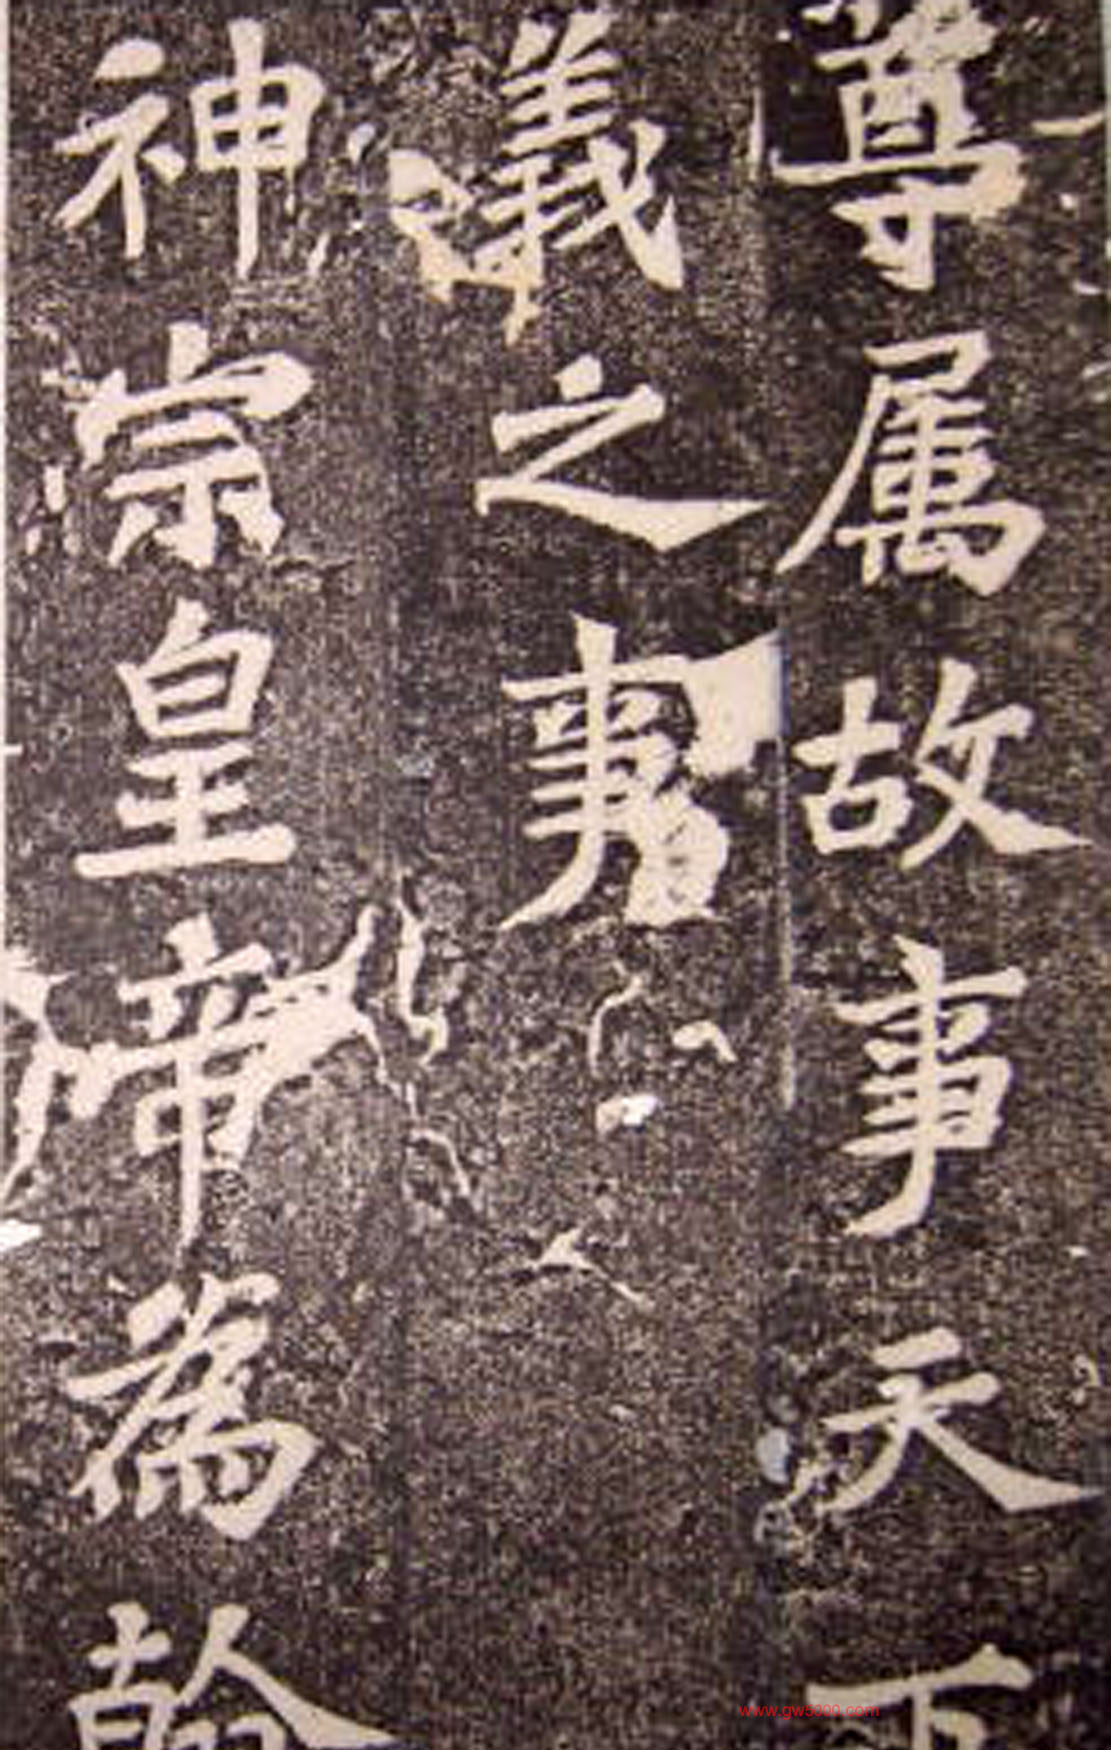 尊属故事天下
義之事
神宗皇帝為翰
www.gw5000.com